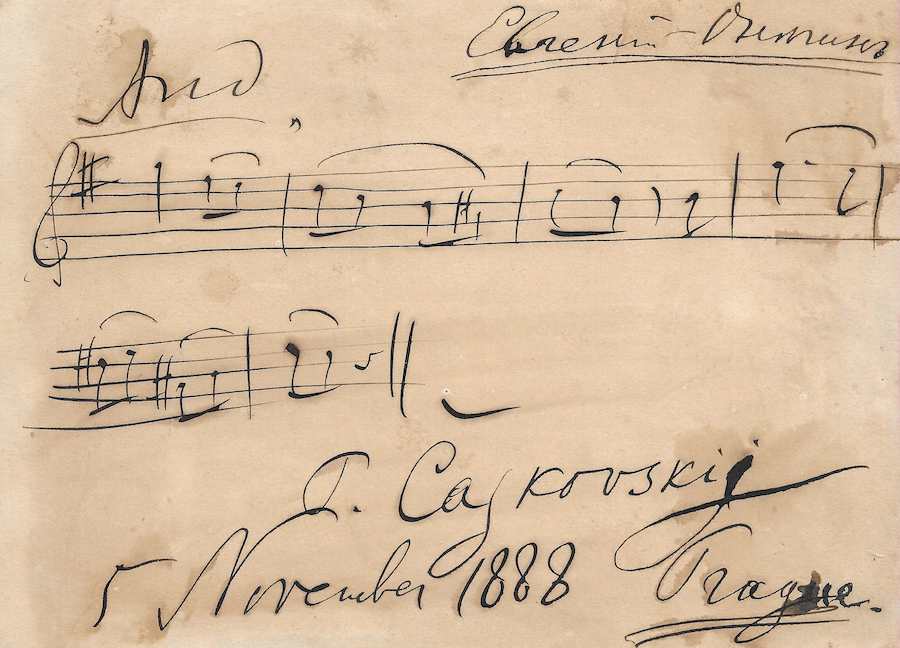 Евгеній - Онѣгинъ
And
P. Cajkovskij
5 November 1888 Prague.